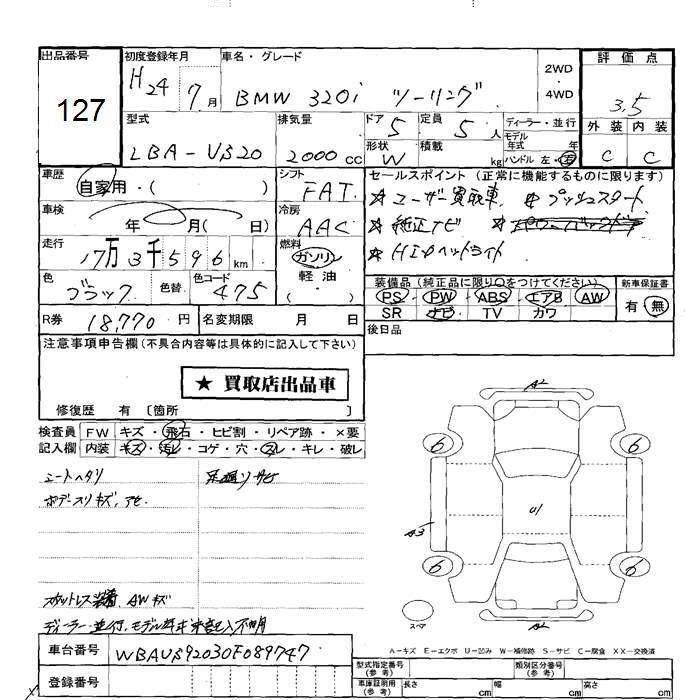 出品番号
127
初度登録年月
H24 7月
車名・グレード
BMW 320i ツーリング
2WD
・
4WD
評価点
3.5
外装 内装
C C
型式
LBA-US20
排気量
2000cc
ドア 5
形状 W
定員 5人
積載 kg
ディーラー・並行
モデル年式 年
ハンドル 左・右
車歴
自家用・( )
シフト
FAT
車検
年 月( 日)
冷房
AAC
走行
17万3千596km
燃料
ガソリン
軽・油
色
ブラック
色替
色コード
475
セールスポイント(正常に機能するものに限ります)
☆ユーザー買取車 ☆プッシュスタート
☆純正ナビ
☆HIDヘッドライト
装備品(純正品に限り○をつけてください)
PS・PW・ABS・エアB・AW
SR ナビ TV カワ
新車保証書
有 無
後日品
R券 18,770円
名変期限 月 日
注意事項申告欄(不具合内容等は具体的に記入して下さい)
★ 買取店出品車
修復歴 有〔箇所 〕
検査員記入欄
FW キズ・飛石・ヒビ割・リペア跡・×要
内装 キズ・汚レ・コゲ・穴・スレ・キレ・破レ
シートヘタリ
ボデースリキズ,アセ
スペアレス装着 AWキズ
ディーラー・並行、モデル年式 申告記入不明
車台番号
WBAUS92030F089747
登録番号
A2
6
6
A3
U1
6
6
スペア
A2
A-キズ E-エクボ U-凹み W-補修跡 S-サビ C-腐食 XX-交換済
型式指定番号(参考)
類別区分番号(参考)
車庫証明用(参考)
長さ cm
幅 cm
高さ cm